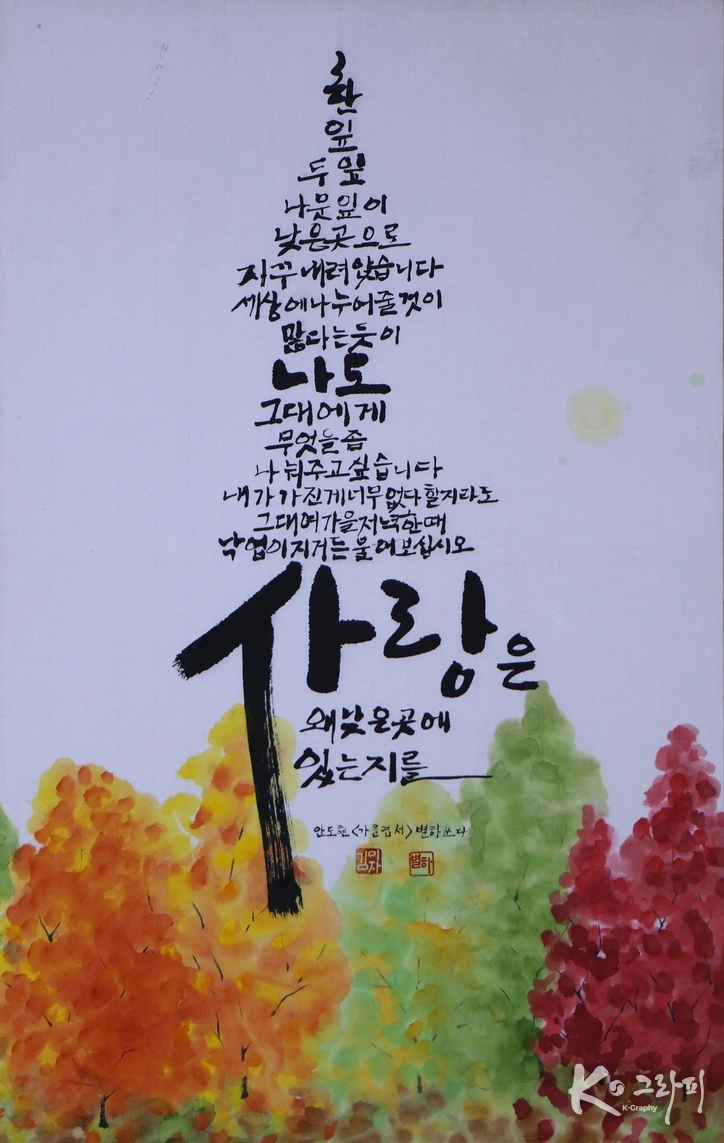 한
잎
두 잎
나뭇잎이
낮은곳으로
자꾸 내려앉습니다
세상에나누어줄것이
많다는듯이
나도
그대에게
무엇을좀
나눠주고싶습니다
내가 가진게너무없다 할지라도
그대여가을저녁한때
낙엽이지거든 물어보십시오
사랑은
왜낮은곳에
있는지를
안도현 <가을엽서> 별하쓰다
김이자 별하
K 그라피
K-Graphy